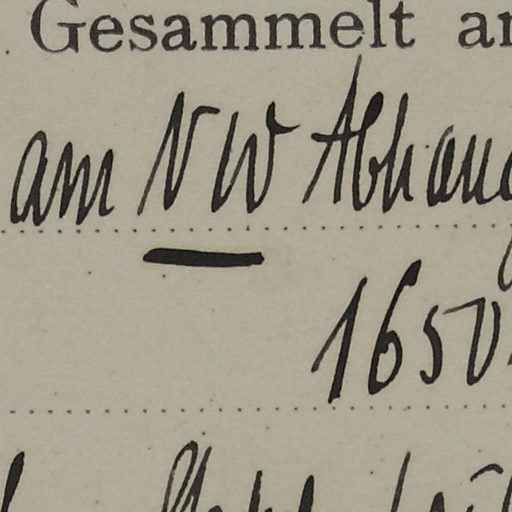 Gesammelt an
am NW Abhang
1650